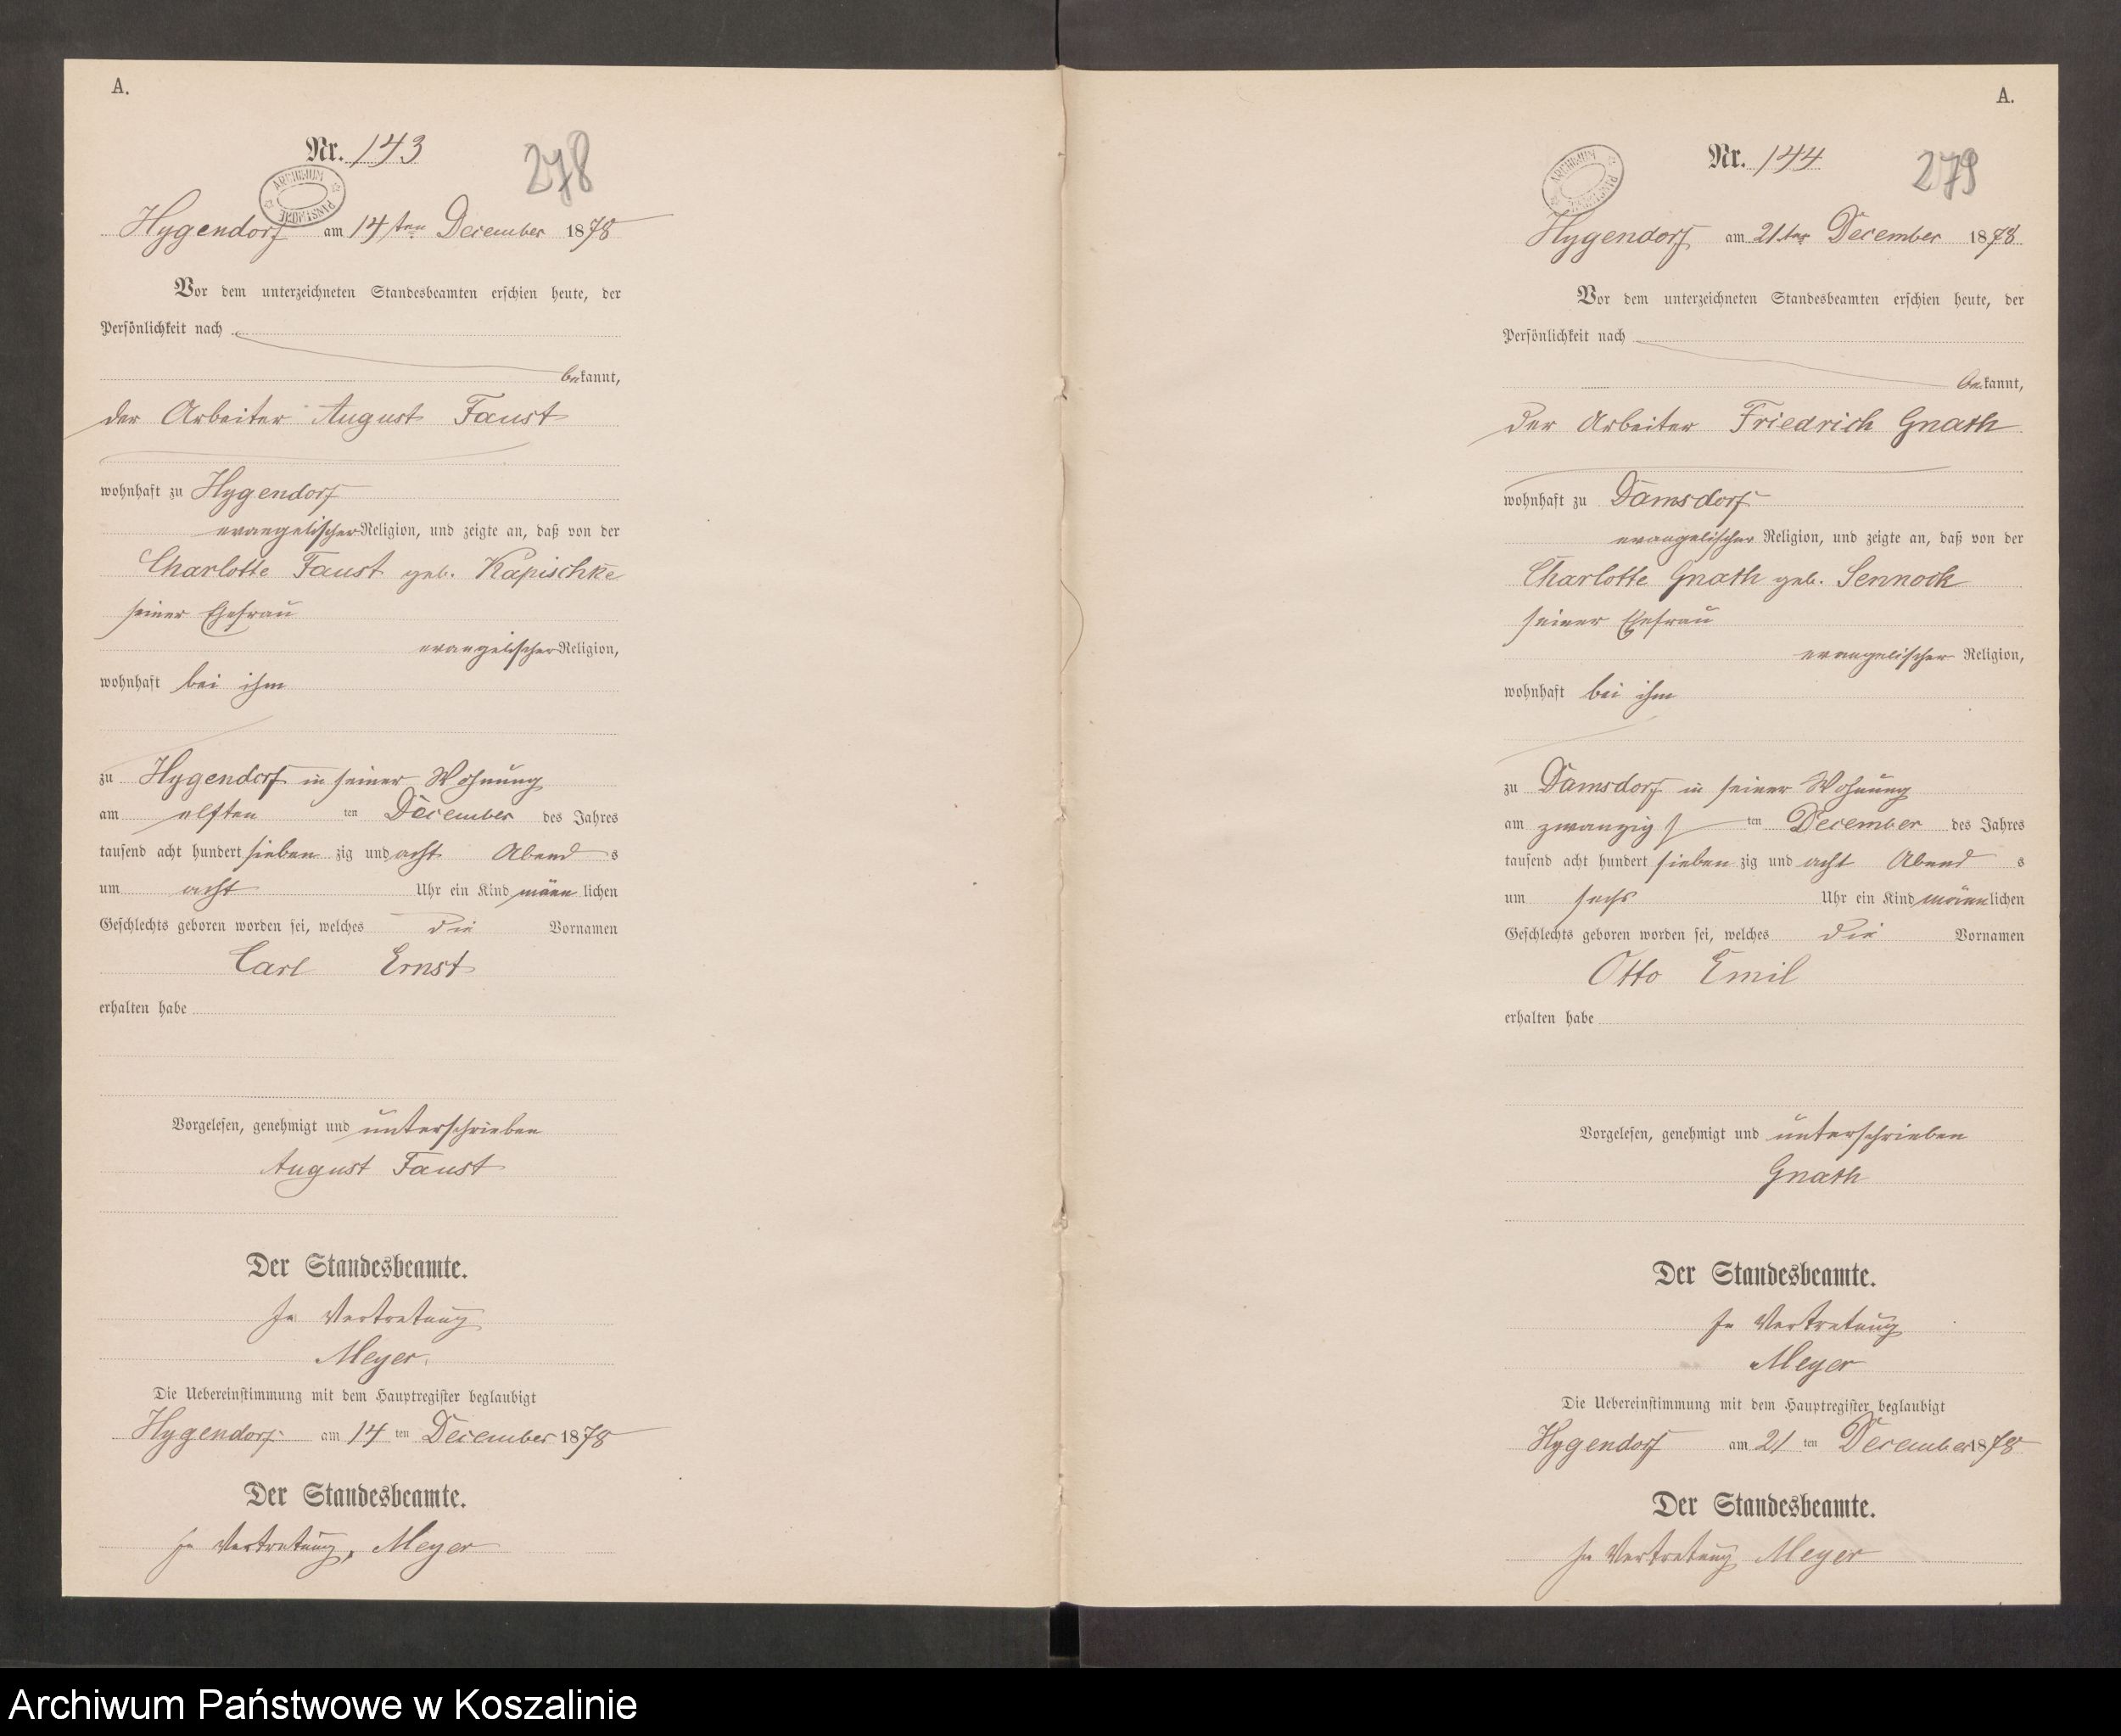 A.
Nr. 143
278
ARCHIWUM PAŃSTWOWE
Hygendorf am 14ten December 1878
Vor dem unterzeichneten Standesbeamten erschien heute, der
Persönlichkeit nach
bekannt,
der Arbeiter August Faust
wohnhaft zu Hygendorf
evangelischer Religion, und zeigte an, daß von der
Charlotte Faust geb. Kapischke
seiner Ehefrau
evangelischer Religion,
wohnhaft bei ihm
zu Hygendorf in seiner Wohnung
am elften ten December des Jahres
tausend acht hundert sieben zig und acht Abend s
um acht Uhr ein Kind männ lichen
Geschlechts geboren worden sei, welches die Vornamen
Carl Ernst
erhalten habe
Vorgelesen, genehmigt und unterschrieben
August Faust
Der Standesbeamte.
In Vertretung
Meyer.
Die Uebereinstimmung mit dem Hauptregister beglaubigt
Hygendorf am 14 ten December 1878
Der Standesbeamte.
In Vertretung, Meyer
A.
Nr. 144
279
ARCHIWUM PAŃSTWOWE
Hygendorf am 21ten December 1878
Vor dem unterzeichneten Standesbeamten erschien heute, der
Persönlichkeit nach
bekannt,
der Arbeiter Friedrich Gnath
wohnhaft zu Damsdorf
evangelischer Religion, und zeigte an, daß von der
Charlotte Gnath geb. Sennock
seiner Ehefrau
evangelischer Religion,
wohnhaft bei ihm
zu Damsdorf in seiner Wohnung
am zwanzigs ten December des Jahres
tausend acht hundert sieben zig und acht Abend s
um sechs Uhr ein Kind männlichen
Geschlechts geboren worden sei, welches die Vornamen
Otto Emil
erhalten habe
Vorgelesen, genehmigt und unterschrieben
Gnath
Der Standesbeamte.
In Vertretung
Meyer
Die Uebereinstimmung mit dem Hauptregister beglaubigt
Hygendorf am 21 ten December 1878
Der Standesbeamte.
In Vertretung Meyer
Archiwum Państwowe w Koszalinie